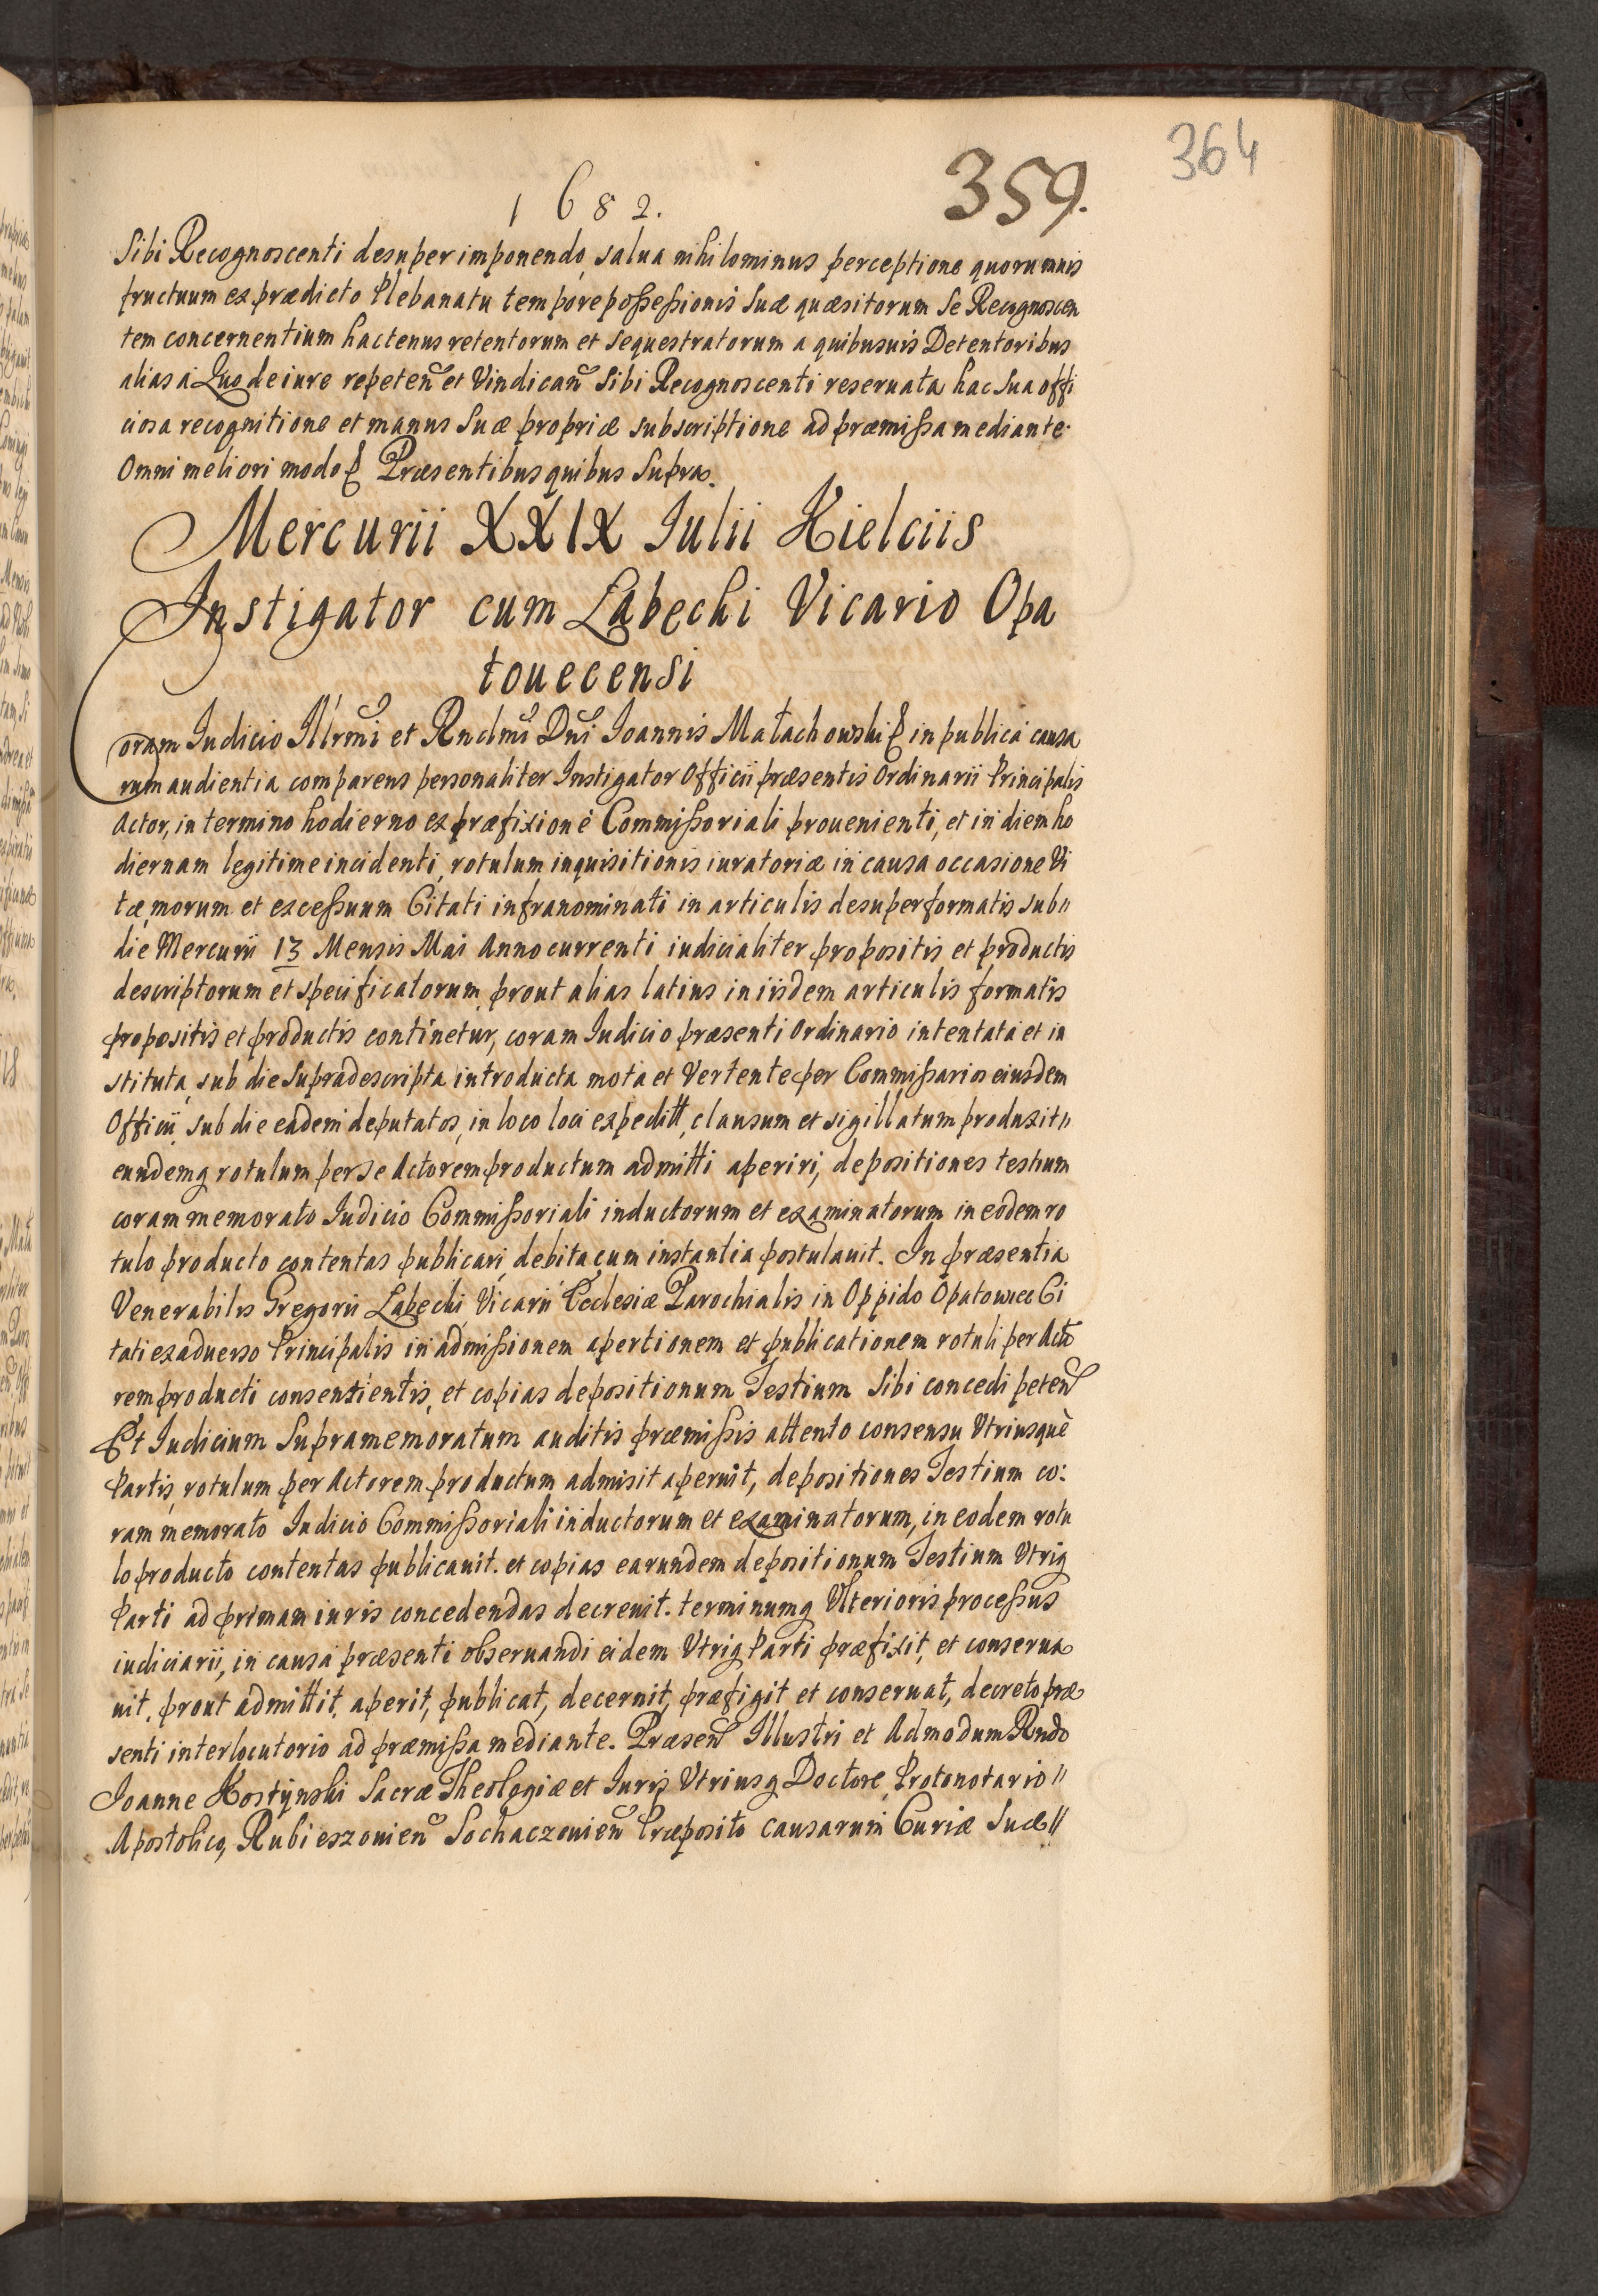 364
359.
1682.
Sibi Recognoscenti desuper imponendo, salua nihilominus perceptione quorumuis
fructuum ex prædicto Plebanatu tempore poßeßionis Suæ quæsitorum Se Recognoscen
tem concernentium hactenus retentorum et sequestratorum a quibusuis Detentoribus
alias a Quo de iure repeteñ et Vindicañ Sibi Recognoscenti reseruata hac Sua offi
ciosa recognitione et manus Suæ propriæ subscriptione ad præmißa mediante.
Omni meliori modo Præsentibus quibus Supra.
Mercurii XXIX Iulii Kielciis
Instigator cum Łabęcki Vicario Opa
touecensi
Coram Iudicio Illrmi et Rndmi Dni Ioannis Małachowski in publica causa
rum audientia comparens personaliter Instigator Officii præsentis Ordinarii Principalis
Actor, in termino hodierno ex præfixione Commißoriali prouenienti, et in diem ho
diernam legitime incidenti, rotulum inquisitionis iuratoriæ in causa occasione Vi
tæ morum et exceßuum Citati infranominati in articulis desuper formatis sub〃
die Mercurii 13 Mensis Mai Anno currenti iudicialiter propositis et productis
descriptorum et specificatorum, prout alias latius in iisdem articulis formatis
propositis et productis continetur, coram Iudicio præsenti Ordinario intentata et in
stituta, sub die Supradescripta introducta mota et Vertente per Commißarios eiusdem
Officii, sub die eadem deputatos, in loco loci expeditt, clausum et sigillatum produxit〃
eundemq rotulum per se Actorem productum admitti aperiri, depositiones testium
coram memorato Iudicio Commißoriali inductorum et examinatorum in eodem ro
tulo producto contentas publicari, debita cum instantia postulauit. In præsentia
Venerabilis Gregorii Łabęcki Vicarii Ecclesiæ Parochialis in Oppido Opatowiec Ci
tati ex aduerso Principalis in admißionem apertionem et publicationem rotuli per Acto
rem producti consentientis, et copias depositionum Testium Sibi concedi peteñ
Et Iudicium Supramemoratum auditis præmißis attento consensu Vtriusquè
Partis, rotulum per Actorem productum admisit aperuit, depositiones Testium co:
ram memorato Iudicio Commißoriali inductorum et examinatorum, in eodem rotu
lo producto contentas publicauit. et copias earundem depositionum Testium Vtriq
Parti ad primam iuris concedendas decreuit. terminumq Vlterioris proceßus
iudiciarii, in causa præsenti obseruandi eidem Vtriq Parti præfixit, et conserua
uit, prout admittit, aperit, publicat, decernit, præfigit et conseruat, decreto præ
senti interlocutorio ad præmißa mediante. Præseñ Illustri et Admodum Rndo
Ioanne Kostÿnski Sacræ Theologiæ et Iuris Vtriusq Doctore, Protonotario〃
Apostolico, Rubieszouieñ Sochaczouieñ Præposito causarum Curiæ Suæ〃